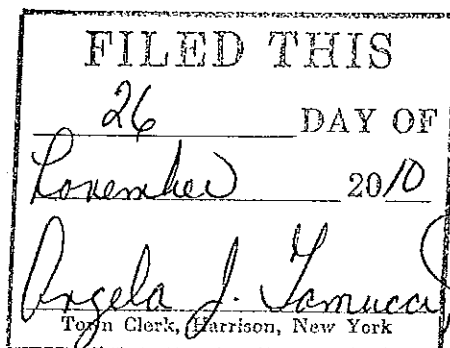 FILED THIS
26 DAY OF
November 2010
Angela J. Jamucci
Town Clerk, Harrison, New York